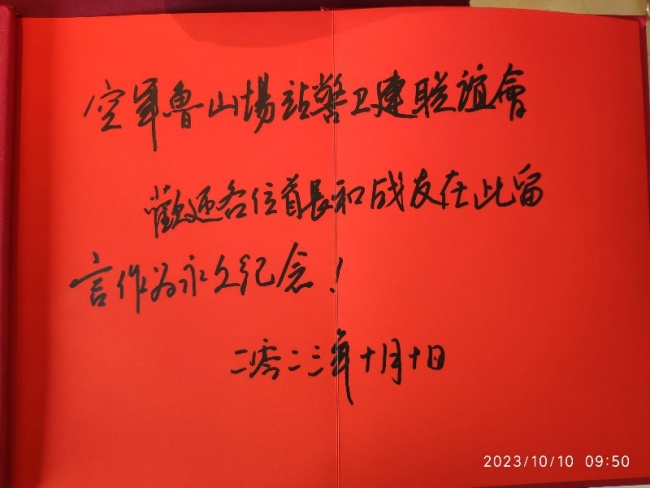 空军鲁山場站警卫連联誼會
歡迎各位首長和战友在此留
言作为永久纪念！
二零二三年十月十日
2023/10/10 09:50